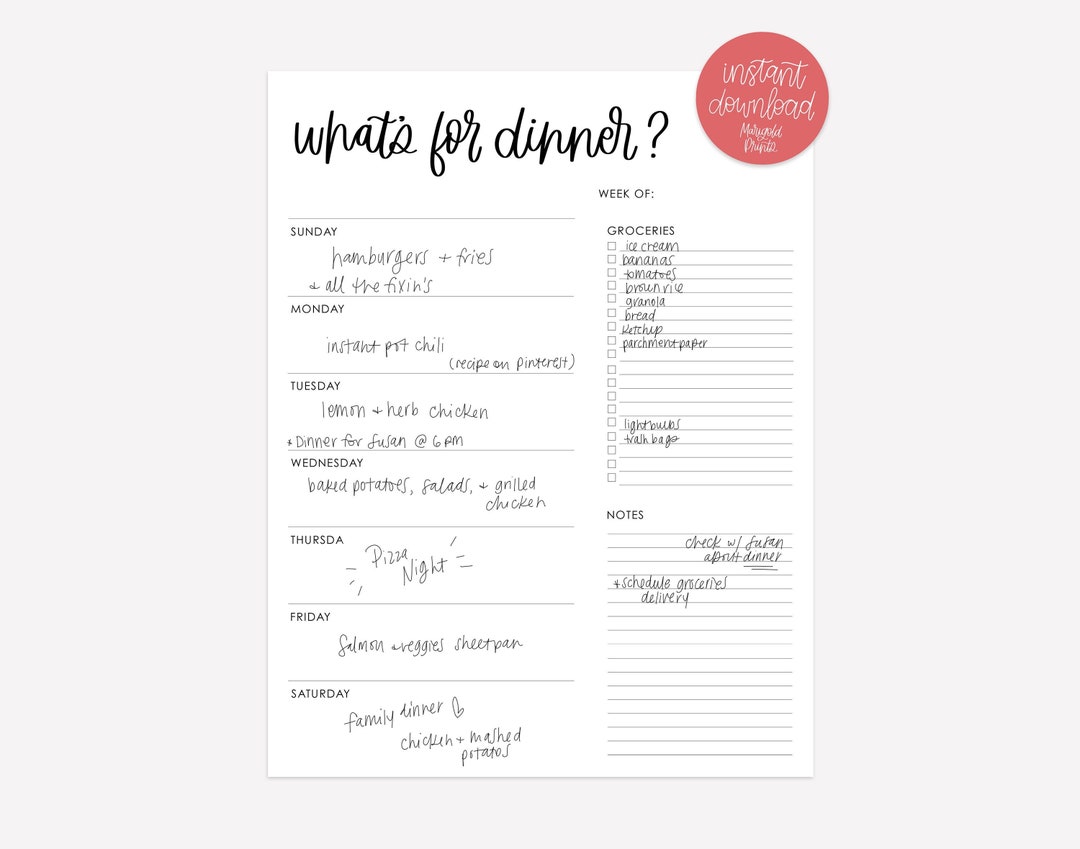 instant
download
Marygold
Prints
what's for dinner?
WEEK OF:
SUNDAY
hamburgers + fries
+ all the fixin's
MONDAY
instant pot chili
(recipe on Pinterest)
TUESDAY
lemon + herb chicken
* Dinner for Susan @ 6 PM
WEDNESDAY
baked potatoes, salads, + grilled
chicken
THURSDA
Pizza
Night
FRIDAY
Salmon + veggies sheetpan
SATURDAY
family dinner
chicken + mashed
potatos
GROCERIES
ice cream
bananas
tomatoes
brown rice
granola
bread
ketchup
parchment paper
lightbulbs
trash bags
NOTES
check w/ Susan
about dinner
* schedule groceries
delivery